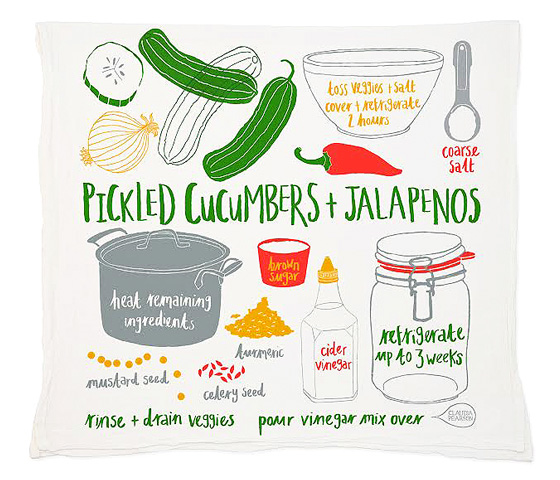 toss veggies + salt
cover + refrigerate
2 hours
coarse
salt
PICKLED CUCUMBERS + JALAPENOS
heat remaining
ingredients
brown
sugar
turmeric
cider
vinegar
refrigerate
up to 3 weeks
mustard seed
celery seed
rinse + drain veggies
pour vinegar mix over
CLAUDIA
PEARSON